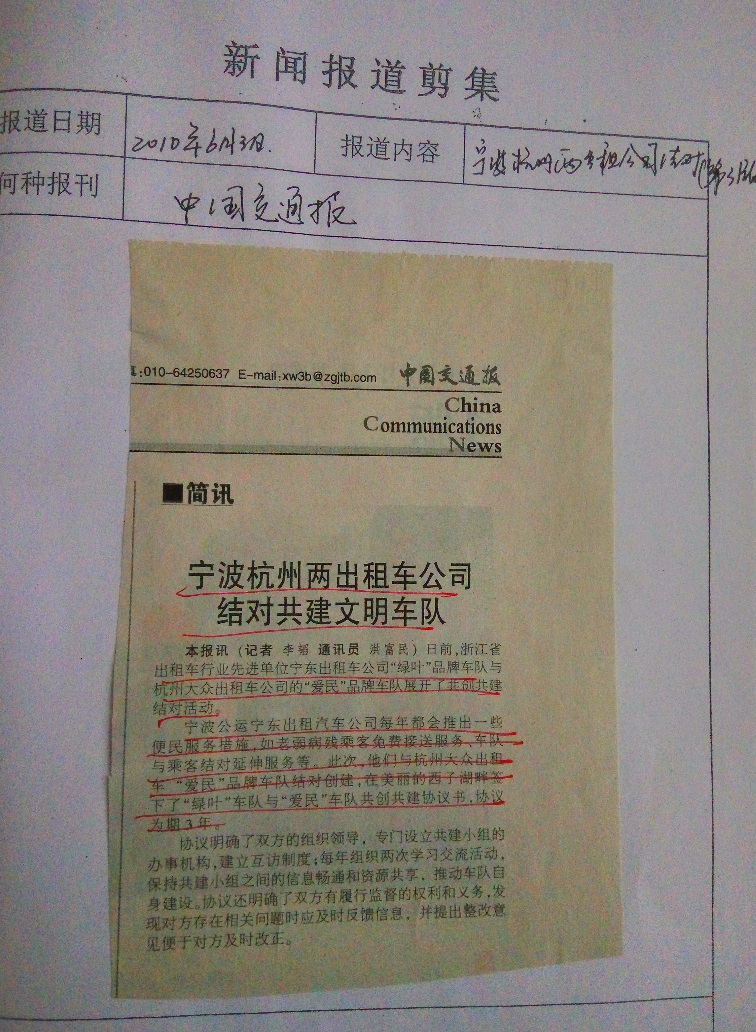 新闻报道剪集
报道日期
2010年6月3日.
报道内容
宁波杭州两出租公司结对
何种报刊
中国交通报
:010-64250637 E-mail:xw3b@zgjtb.com 中国交通报
China
Communications
News
■简讯
宁波杭州两出租车公司
结对共建文明车队
本报讯 (记者 李韬 通讯员 洪富民) 日前,浙江省
出租车行业先进单位宁东出租车公司“绿叶”品牌车队与
杭州大众出租车公司的“爱民”品牌车队展开了共创共建
结对活动。
宁波公运宁东出租汽车公司每年都会推出一些
便民服务措施,如老弱病残乘客免费接送服务、车队
与乘客结对延伸服务等。此次,他们与杭州大众出租
车“爱民”品牌车队结对创建,在美丽的西子湖畔签
下了“绿叶”车队与“爱民”车队共创共建协议书,协议
为期3年。
协议明确了双方的组织领导,专门设立共建小组的
办事机构,建立互访制度;每年组织两次学习交流活动,
保持共建小组之间的信息畅通和资源共享,推动车队自
身建设。协议还明确了双方有履行监督的权利和义务,发
现对方存在相关问题时应及时反馈信息,并提出整改意
见便于对方及时改正。